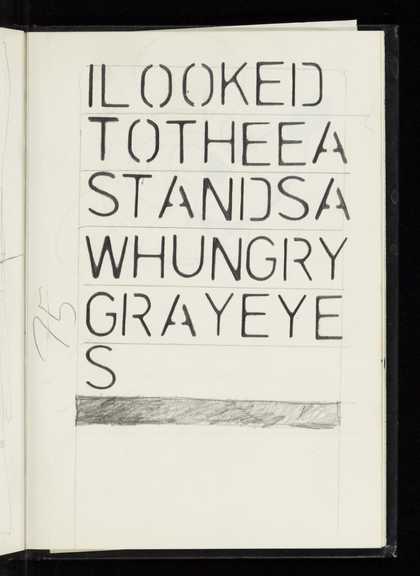 ILOOKED
TOTHEEA
STANDSA
WHUNGRY
GRAYEYE
S
75